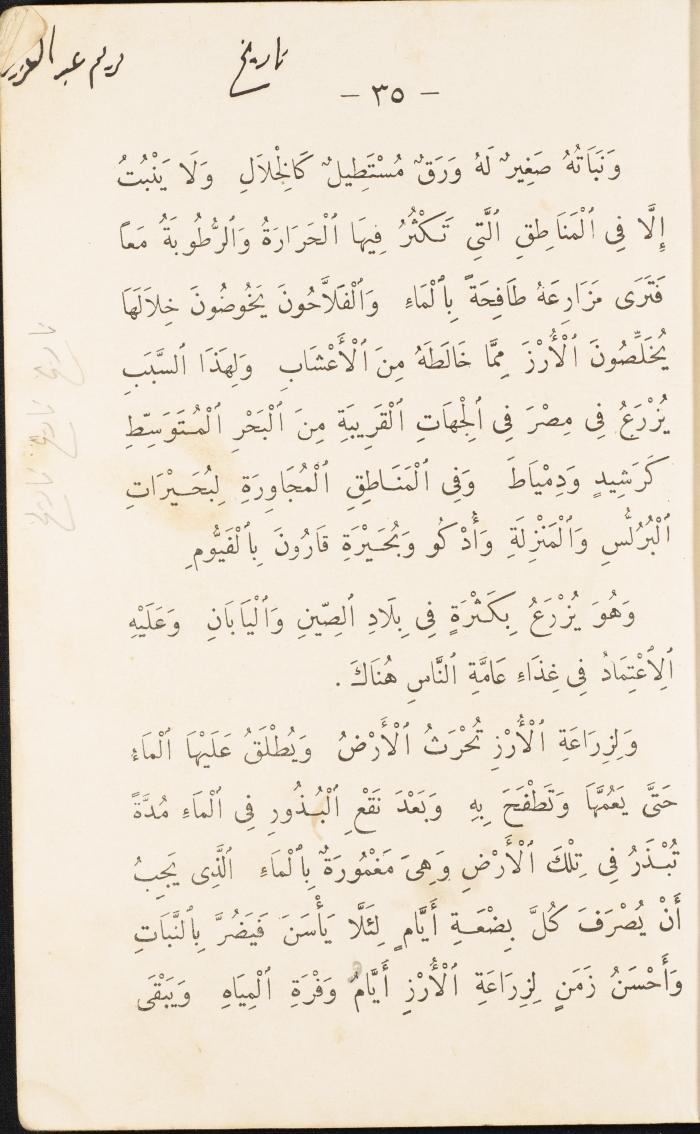 تاريخ
مريم عبد العزيز
— ٣٥ —
وَنَبَاتُهُ صَغِيرٌ لَهُ وَرَقٌ مُسْتَطِيلٌ كَالْخِلَالِ وَلَا يَنْبُتُ
إِلَّا فِى ٱلْمَنَاطِقِ ٱلَّتِى تَكْثُرُ فِيهَا ٱلْحَرَارَةُ وَٱلرُّطُوبَةُ مَعاً
فَتَرَى مَزَارِعَهُ طَافِحَةً بِٱلْمَاءِ وَٱلْفَلَّاحُونَ يَخُوضُونَ خِلَالَهَا
يُخَلِّصُونَ ٱلْأُرْزَ مِمَّا خَالَطَهُ مِنَ ٱلْأَعْشَابِ وَلِهَذَا ٱلسَّبَبِ
يُزْرَعُ فِى مِصْرَ فِى ٱلْجِهَاتِ ٱلْقَرِيبَةِ مِنَ ٱلْبَحْرِ ٱلْمُتَوَسِّطِ
كَرَشِيدٍ وَدِمْيَاطَ وَفِى ٱلْمَنَاطِقِ ٱلْمُجَاوِرَةِ لِبُحَيْرَاتِ
ٱلْبُرُلُّسِ وَٱلْمَنْزِلَةِ وَأُدْكُو وَبُحَيْرَةِ قَارُونَ بِٱلْفَيُّومِ
وَهُوَ يُزْرَعُ بِكَثْرَةٍ فِى بِلَادِ ٱلصِّينِ وَٱلْيَابَانِ وَعَلَيْهِ
ٱلِٱعْتِمَادُ فِى غِذَاءِ عَامَّةِ ٱلنَّاسِ هُنَاكَ .
وَلِزِرَاعَةِ ٱلْأُرْزِ تُحْرَثُ ٱلْأَرْضُ وَيُطْلَقُ عَلَيْهَا ٱلْمَاءُ
حَتَّى يَعُمَّهَا وَتَطْفَحَ بِهِ وَبَعْدَ نَقْعِ ٱلْبُذُورِ فِى ٱلْمَاءِ مُدَّةً
تُبْذَرُ فِى تِلْكَ ٱلْأَرْضِ وَهِىَ مَغْمُورَةٌ بِٱلْمَاءِ ٱلَّذِى يَجِبُ
أَنْ يُصْرَفَ كُلَّ بِضْعَةِ أَيَّامٍ لِئَلَّا يَأْسَنَ فَيَضُرَّ بِٱلنَّبَاتِ
وَأَحْسَنُ زَمَنٍ لِزِرَاعَةِ ٱلْأُرْزِ أَيَّامُ وَفْرَةِ ٱلْمِيَاهِ وَيَبْقَى
تاريخ تاريخ تاريخ